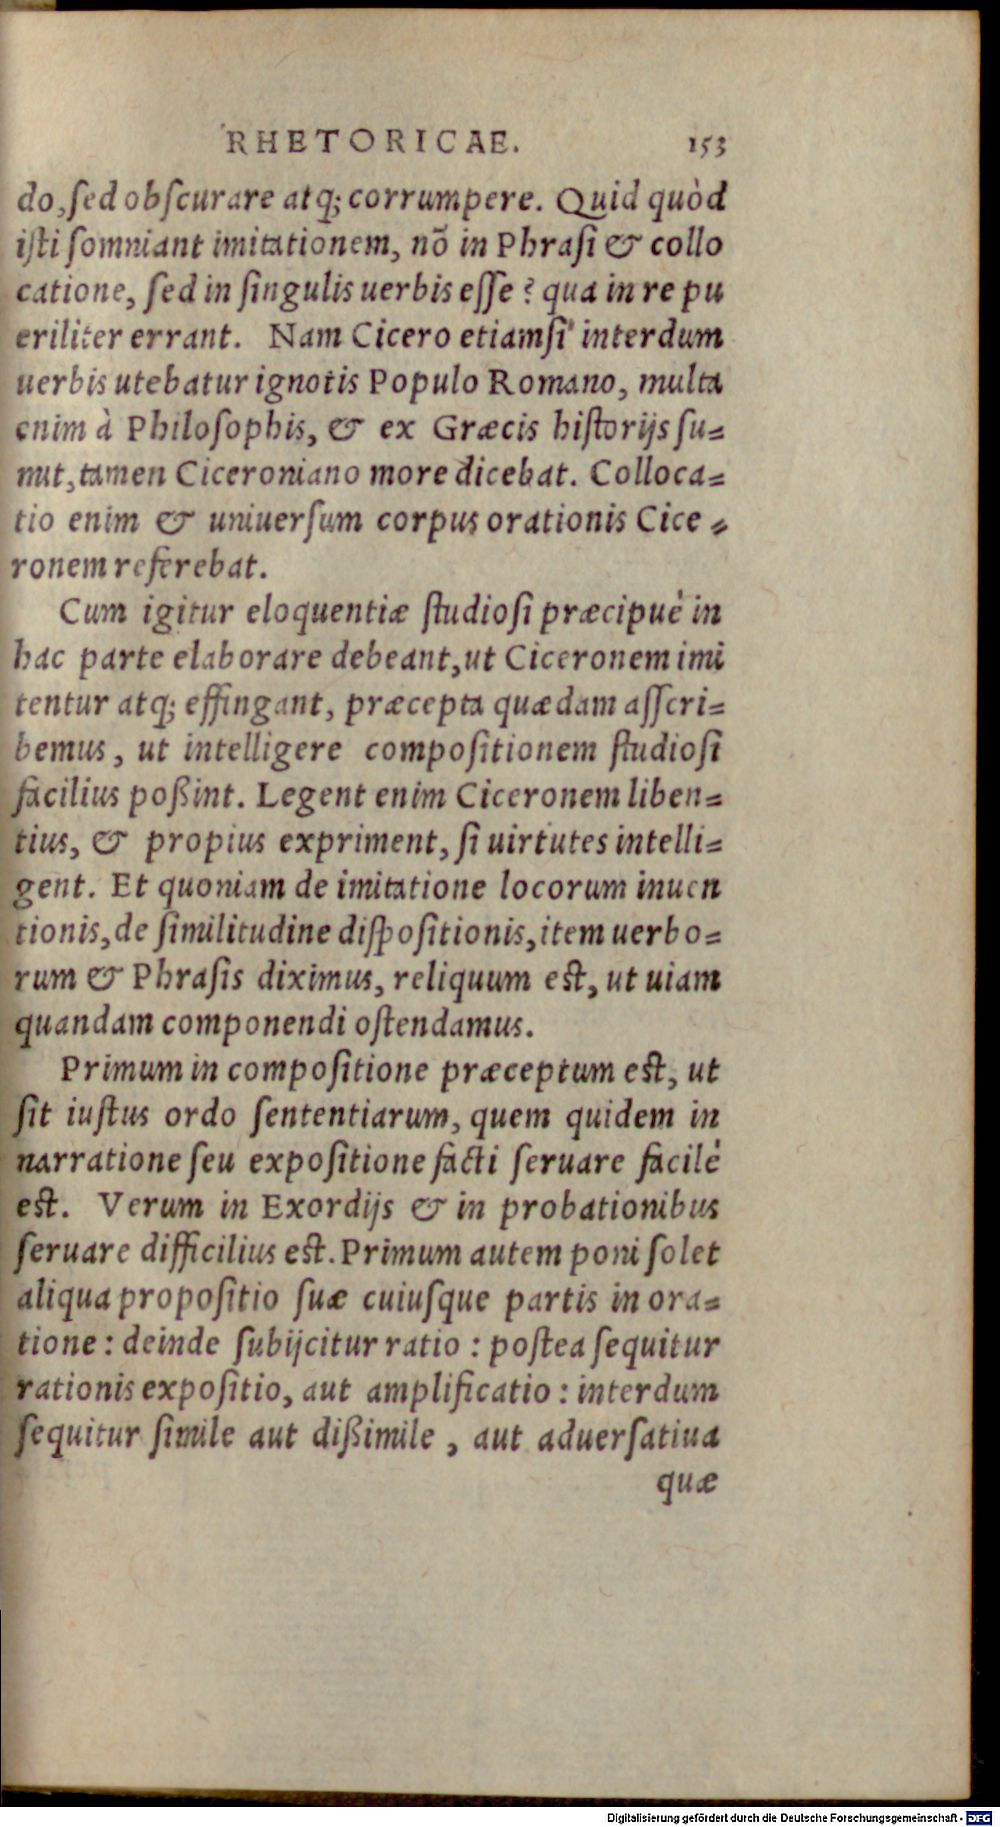 RHETORICAE. 153
do, ſed obſcurare atq; corrumpere. Quid quòd
iſti ſomniant imitationem, nō in Phraſi & collo
catione, ſed in ſingulis uerbis eſſe? qua in re pu
eriliter errant. Nam Cicero etiamſi interdum
uerbis utebatur ignotis Populo Romano, multa
enim à Philoſophis, & ex Græcis hiſtorijs ſu=
mit, tamen Ciceroniano more dicebat. Colloca=
tio enim & uniuerſum corpus orationis Cice=
ronem referebat.
Cum igitur eloquentiæ ſtudioſi præcipuè in
hac parte elaborare debeant, ut Ciceronem imi
tentur atq; effingant, præcepta quædam aſſcri=
bemus, ut intelligere compoſitionem ſtudioſi
facilius poßint. Legent enim Ciceronem liben=
tius, & propius expriment, ſi uirtutes intelli=
gent. Et quoniam de imitatione locorum inuen
tionis, de ſimilitudine diſpoſitionis, item uerbo=
rum & Phraſis diximus, reliquum eſt, ut uiam
quandam componendi oſtendamus.
Primum in compoſitione præceptum eſt, ut
ſit iuſtus ordo ſententiarum, quem quidem in
narratione ſeu expoſitione facti ſeruare facilè
eſt. Verum in Exordijs & in probationibus
ſeruare difficilius eſt. Primum autem poni ſolet
aliqua propoſitio ſuæ cuiuſque partis in ora=
tione: deinde ſubijcitur ratio: poſtea ſequitur
rationis expoſitio, aut amplificatio: interdum
ſequitur ſimile aut dißimile, aut aduerſatiua
quæ
Digitalisierung gefördert durch die Deutsche Forschungsgemeinschaft - DFG